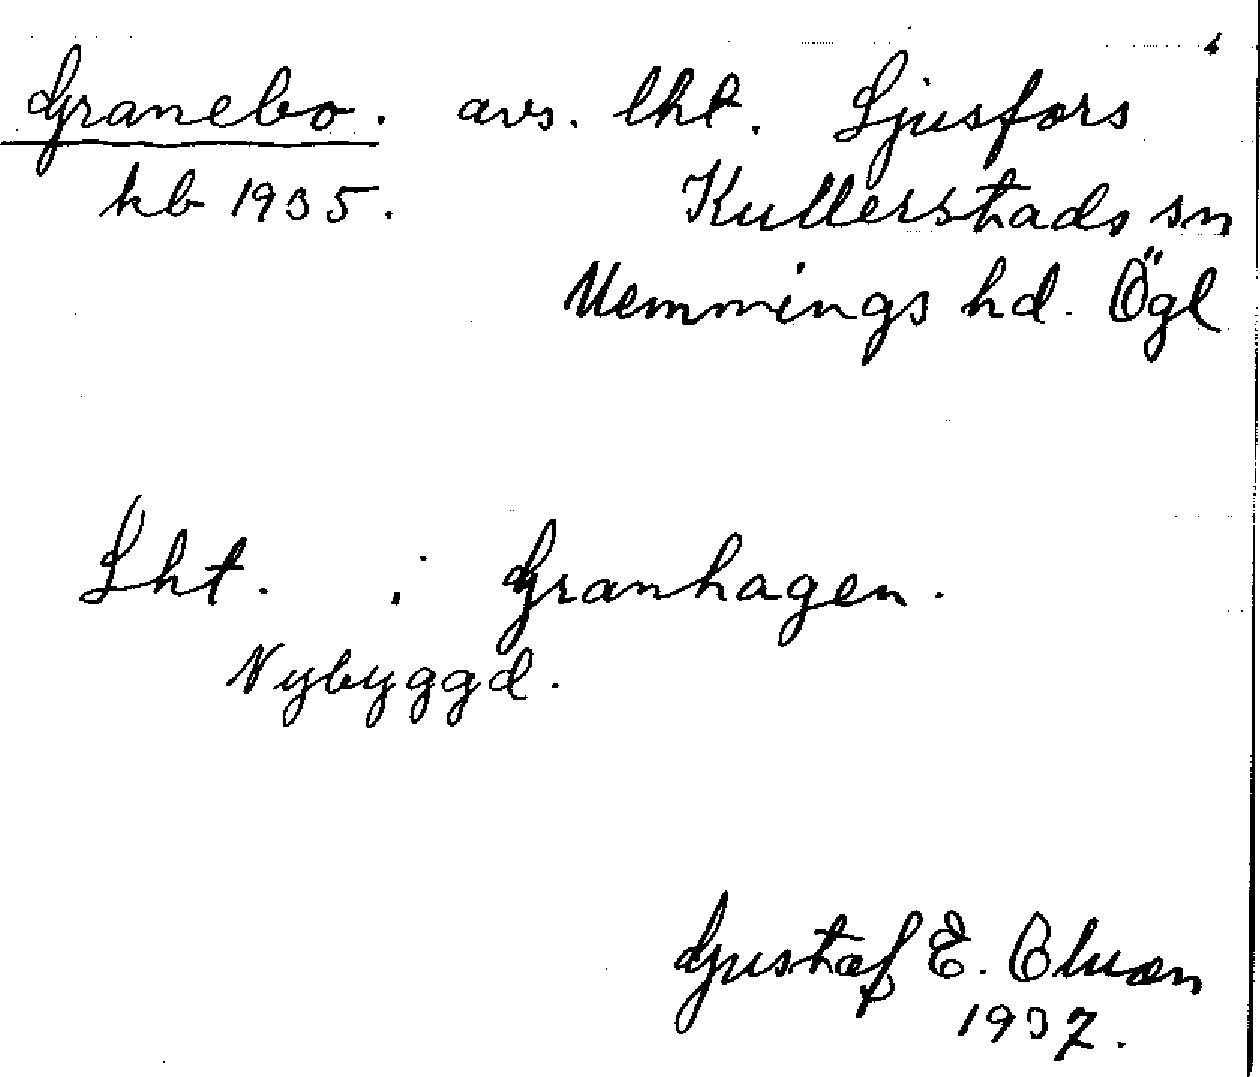 Granebo. avs. lht. Ljusfors
kb 1935. Kullerstads sn
Memmings hd. Ögl
Lht. i Granhagen.
Nybyggd.
Gustaf E.
1937.